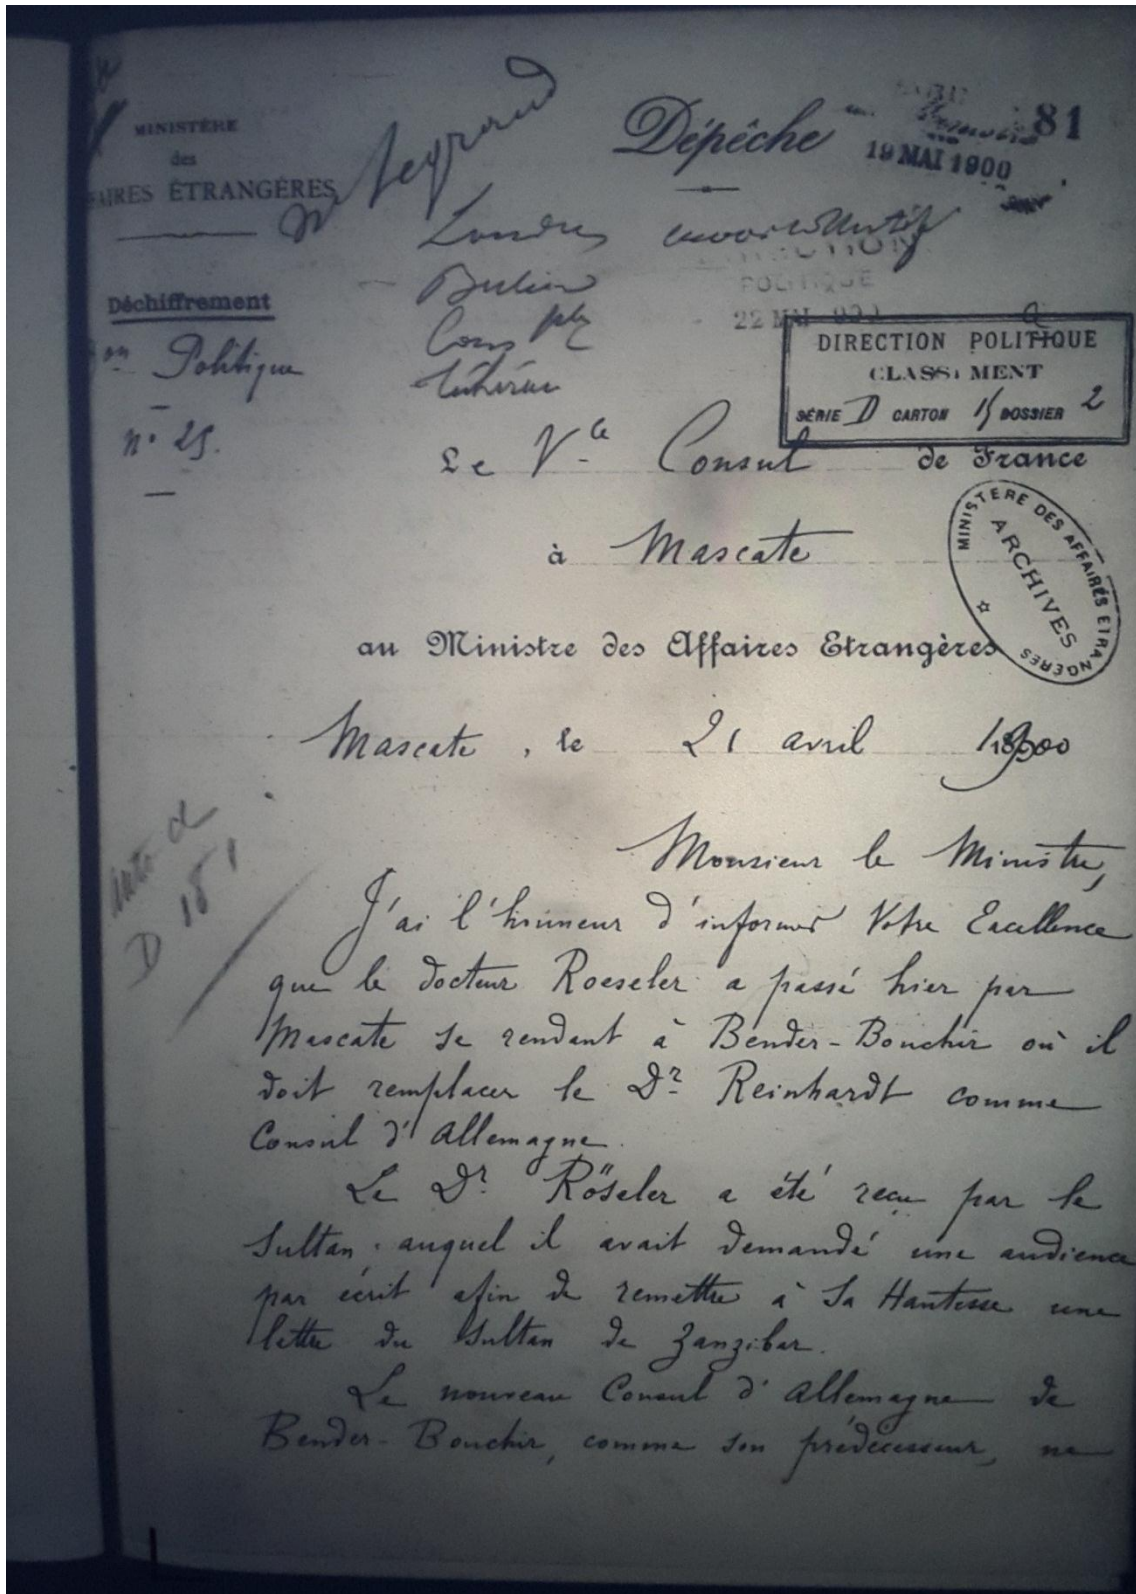 MINISTÈRE
des
FAIRES ÉTRANGÈRES
Dépêche
81
19 MAI 1900
Londres
Berlin
Consple
Téhéran
POLITIQUE
22 MAI
Déchiffrement
on Politique
n° 25.
DIRECTION POLITIQUE
CLASSEMENT
SÉRIE D CARTON 15 DOSSIER 2
Le Vce Consul de France
à Mascate
MINISTERE DES AFFAIRES ETRANGERES
ARCHIVES
au Ministre des Affaires Etrangères
Mascate, le 21 avril 1900
D 15 1
Monsieur le Ministre,
J'ai l'honneur d'informer Votre Excellence
que le docteur Roeseler a passé hier par
Mascate se rendant à Bender-Bouchir où il
doit remplacer le Dr Reinhardt comme
Consul d'Allemagne.
Le Dr Röseler a été reçu par le
Sultan auquel il avait demandé une audience
par écrit afin de remettre à Sa Hautesse une
lettre du Sultan de Zanzibar.
Le nouveau Consul d'Allemagne de
Bender-Bouchir, comme son prédécesseur, ne